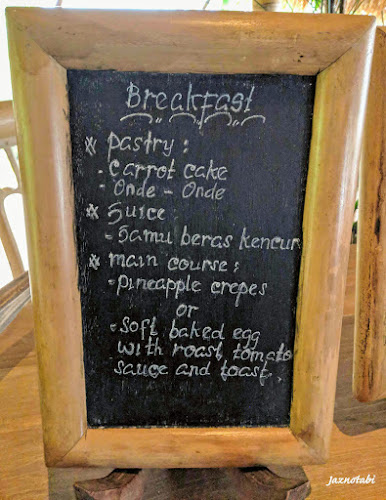 Breakfast
* pastry :
- carrot cake
- Onde - Onde
* Juice :
- Jamu beras kencur
* main course :
- pineapple crepes
or
- soft baked egg
with roast tomato
sauce and toast.
jaxnotabi